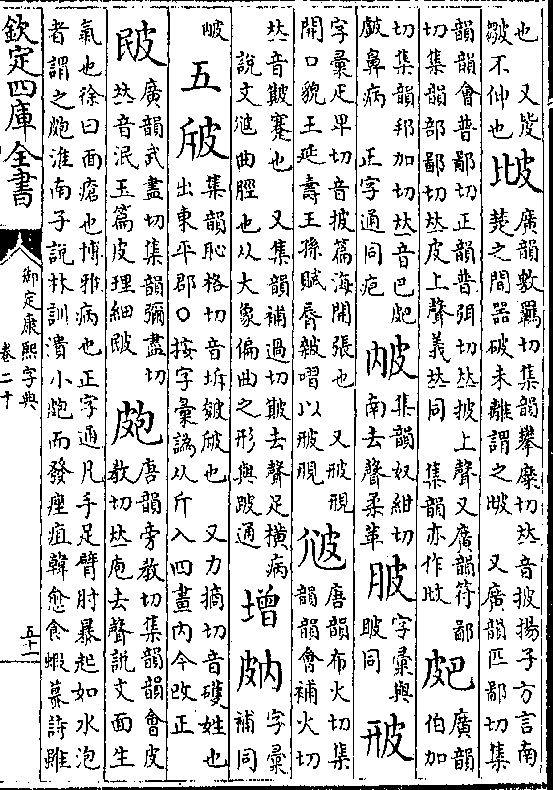 也　又皮
皺不伸也
⿰比皮
廣韻敷羈切集韻攀糜切𠀤音披揚子方言南
楚之間器破未離謂之⿰比皮　又廣韻匹鄙切集
韻韻會普鄙切正韻普弭切𠀤披上聲又廣韻符鄙
切集韻部鄙切𠀤皮上聲義𠀤同　集韻亦作
⿰皮巴
廣韻
伯加
切集韻邦加切𠀤音巴⿰皮巴
皻鼻病　正字通同疤
⿰内皮
集韻奴紺切
南去聲柔革
⿰月皮
字彙與
同
⿰开皮
字彙疋畀切音披篇海開張也　又⿰开皮
開口貌王延壽王孫賦脣皴以⿰开皮
⿰尢皮
唐韻布火切集
韻韻會補火切
𠀤音皺蹇也　又集韻補過切去聲足橫病
說文𡯁曲脛也从大象偏曲之形與跛通
增
⿰皮内
字彙
補同
⿰内皮
五
⿰斥皮
集韻恥格切音坼皴⿰斥皮也　又力摘切音礰姓也
出東平郡○按字彙譌从斤入四畫內今改正
⿰民皮
廣韻武盡切集韻彌盡切
𠀤音泯玉篇皮理細⿰民皮
皰
唐韻旁敎切集韻韻會皮
敎切𠀤庖去聲說文面生
氣也徐曰面瘡也博雅病也正字通凡手足臂肘暴起如水泡
者謂之皰淮南子說林訓潰小皰而發痤疽韓愈食蝦蟇詩雖
欽定四庫全書
御定康熙字典
卷二十
五十二